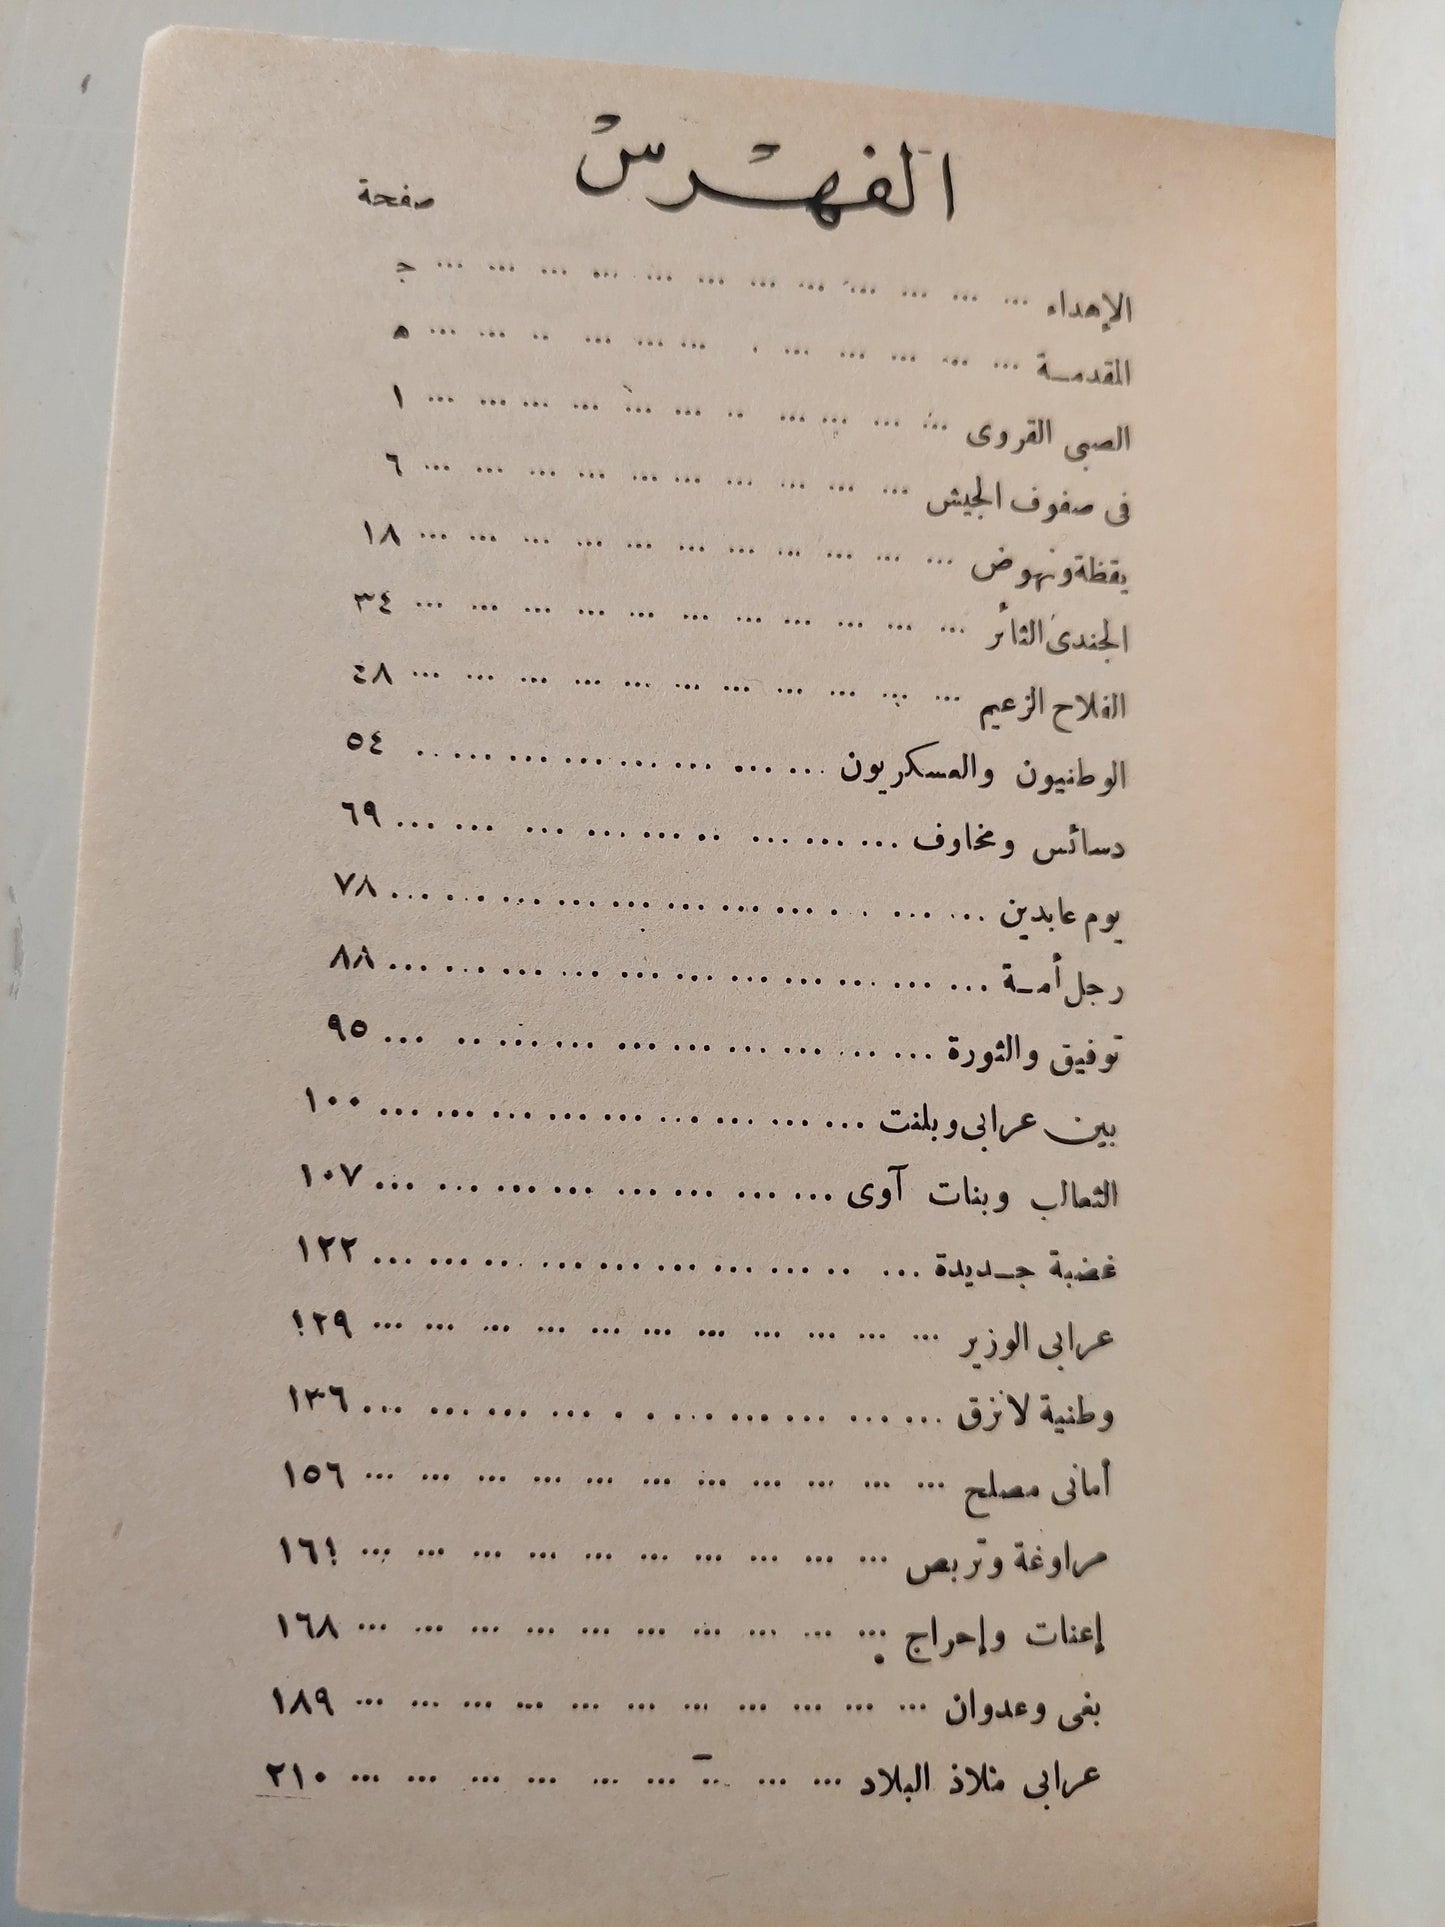 الفهرس
صفحة
الإهداء ... ... ... ... ... ... ... ... ... ... ... ... ج
المقدمة ... ... ... ... ... . ... ... ... .. ... ... ه
الصبى القروى ... ... ... ... .. ... ... ... ... ... ... ١
فى صفوف الجيش ... ... ... ... ... ... ... ... ... ... ٦
يقظة ونهوض ... ... ... ... ... ... ... ... ... ... ... ١٨
الجندى الثائر ... ... ... ... ... ... ... ... ... ... ... ٣٤
الفلاح الزعيم ... ... ... ... ... ... ... ... ... ... ... ٤٨
الوطنيون والعسكريون ... ... ... ... ... ... ... .. ٥٤
دسائس ومخاوف ... ... ... .. ... ... ... ... ... ٦٩
يوم عابدين ... ... .. ... ... ... ... ... ... ... ... ٧٨
رجل أمة ... ... ... ... ... ... ... ... ... ... ... ٨٨
توفيق والثورة ... ... ... ... ... ... ... ... .. ... ٩٥
بين عرابى وبلنت ... ... ... ... ... ... ... ... ... ١٠٠
الثعالب وبنات آوى ... ... ... ... ... ... ... ... ١٠٧
غضبة جديدة ... .. ... ... ... ... ... ... ... ... ١٢٢
عرابى الوزير ... ... ... ... ... ... ... ... ... ... ... ١٢٩
وطنية لا نزق ... ... ... ... ... . . ... ... ... ... ١٣٦
أمانى مصلح ... ... ... ... ... ... ... ... ... ... ... ١٥٦
مراوغة وتربص ... ... ... ... ... ... ... ... ... ... ١٦١
إعنات وإحراج ... ... ... ... ... ... ... ... ... ... ١٦٨
بغى وعدوان ... ... ... ... ... ... ... ... ... ... ... ١٨٩
عرابى ملاذ البلاد ... ... ... ... ... ... ... ... ... ٢١٠